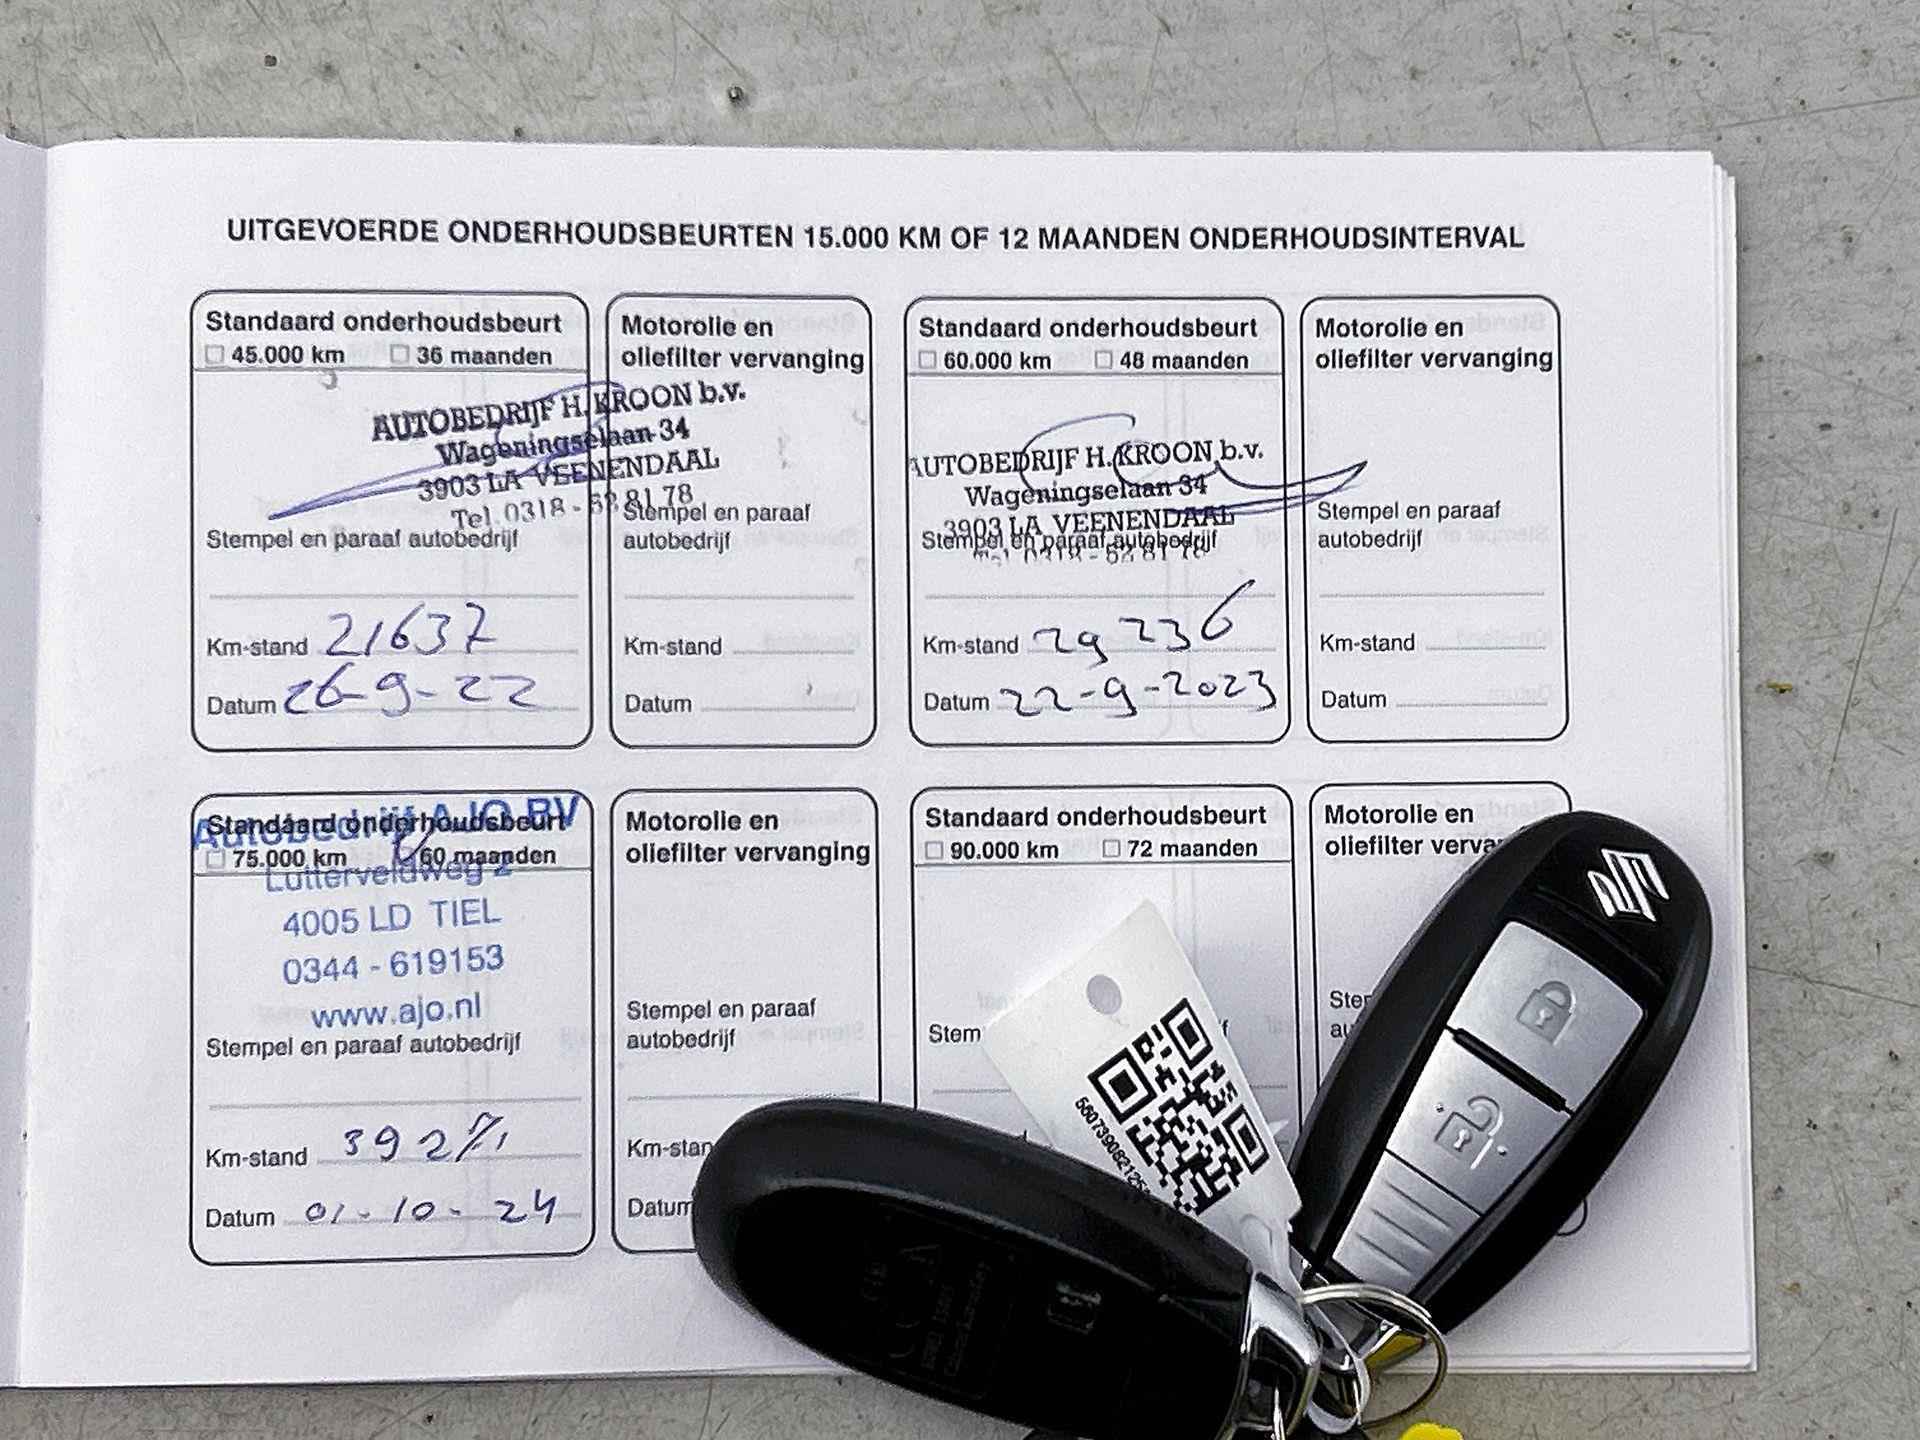 UITGEVOERDE ONDERHOUDSBEURTEN 15.000 KM OF 12 MAANDEN ONDERHOUDSINTERVAL
Standaard onderhoudsbeurt
45.000 km 36 maanden
AUTOBEDRIJF H. KROON b.v.
Wageningselaan 34
3903 LA VEENENDAAL
Tel. 0318 - 52 81 78
Stempel en paraaf autobedrijf
Km-stand 21637
Datum 26-9-22
Motorolie en
oliefilter vervanging
Stempel en paraaf
autobedrijf
Km-stand
Datum
Standaard onderhoudsbeurt
60.000 km 48 maanden
AUTOBEDRIJF H. KROON b.v.
Wageningselaan 34
3903 LA VEENENDAAL
Tel. 0318 - 52 81 78
Stempel en paraaf autobedrijf
Km-stand 29236
Datum 22-9-2023
Motorolie en
oliefilter vervanging
Stempel en paraaf
autobedrijf
Km-stand
Datum
Standaard onderhoudsbeurt
75.000 km 60 maanden
Autobedrijf AJO BV
Lutterveldweg 2
4005 LD TIEL
0344 - 619153
www.ajo.nl
Stempel en paraaf autobedrijf
Km-stand
Datum 01-10-24
Motorolie en
oliefilter vervanging
Stempel en paraaf
autobedrijf
Km-stan
Datum
Standaard onderhoudsbeurt
90.000 km 72 maanden
Stem
Motorolie en
oliefilter verva
Ster
au